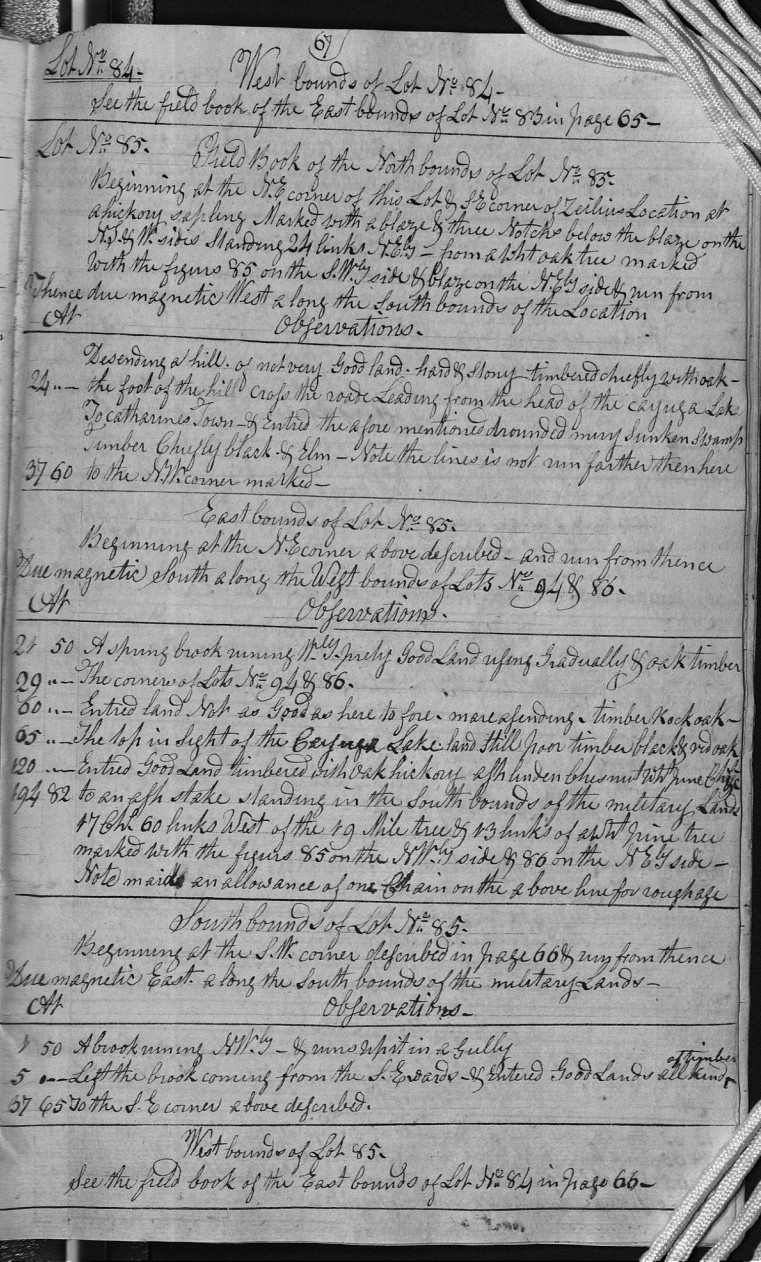 67
Lot No. 84-
West bounds of Lot No. 84-
See the field book of the East bounds of Lot No. 83 in page 65-
Lot No. 85.
Field Book of the North bounds of Lot No. 85.
Beginning at the N.E corner of this Lot & S.E corner of Zeilius Location at
a hickory sapling Marked with a blaze & three Notchs below the blaze on the
N,S,& W. sides Standing 24 links N.Ely - from a Wht oak tree marked
With the figurs 85 on the S.Wly side & blaze on the N.Ely side & run from
Thence due magnetic West along the South bounds of the Location
At Observations.
Desending a hill. of not very Good land. hard & Stony - timbered chiefly with oak-
24 ..- the foot of the hill Cross the rode Leading from the head of the cayuga Lake
To catharines Town - & Entred the afore mentioned drounded miry Sunken Swamp
Timber Chiefly black. & Elm - Note the lines is not run farther then here
37 60 to the N.W. corner marked-
East bounds of Lot No. 85.
Beginning at the N.E corner above described - and run from thence
Due magnetic South along the West bounds of Lots No. 94 & 86.
At Observations.
21 50 A spring brook runing Wly. prety Good Land rising Gradually & oak timber
29 ..- The corners of Lots No. 94 & 86.
60 ..- Entred land Not as Good as here to fore. more asending. timber Rock oak-
65 ..- The top in Sight of the Cayuga Lake land Still poor timber black & red oak
120 ..- Entred Good Land timbered with Oak hickory ash linden chesnut Wht pine &c
194 82 to an ash stake standing in the South bounds of the military Lands
17 Chs. 60 links West of the 19 Mile tree & 13 links of a Wht pine tree
marked with the figurs 85 on the N.Wly side & 86 on the N.Ely side-
Note maide an allowance of one Chain on the above line for roughage
South bounds of Lot No. 85.
Beginning at the S.W. corner described in page 66 & run from thence
Due magnetic East. along the South bounds of the military Lands-
At Observations-
1 50 A brook runing N.Wly - & runs up it in a Gully
of timber
5 ..- Left the brook coming from the S.Ewards - & Entered Good Lands all kinds
37 65 To the S.E corner above described.
West bounds of Lot 85.
See the field book of the East bounds of Lot No. 84 in page 66-